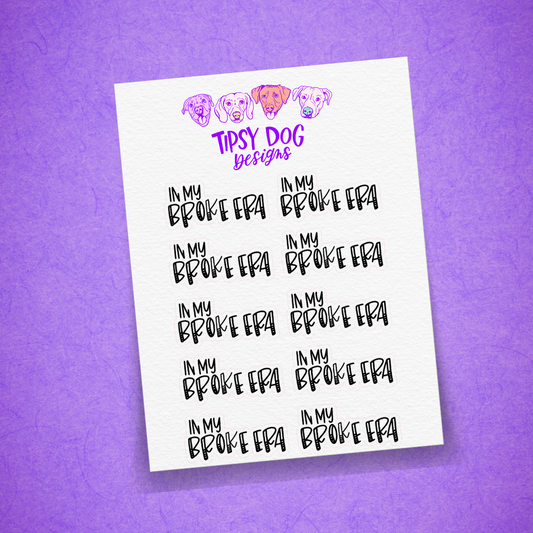 TIPSY DOG
Designs
IN MY IN MY
BROKE ERA BROKE ERA
IN MY IN MY
BROKE ERA BROKE ERA
IN MY IN MY
BROKE ERA BROKE ERA
IN MY IN MY
BROKE ERA BROKE ERA
IN MY IN MY
BROKE ERA BROKE ERA